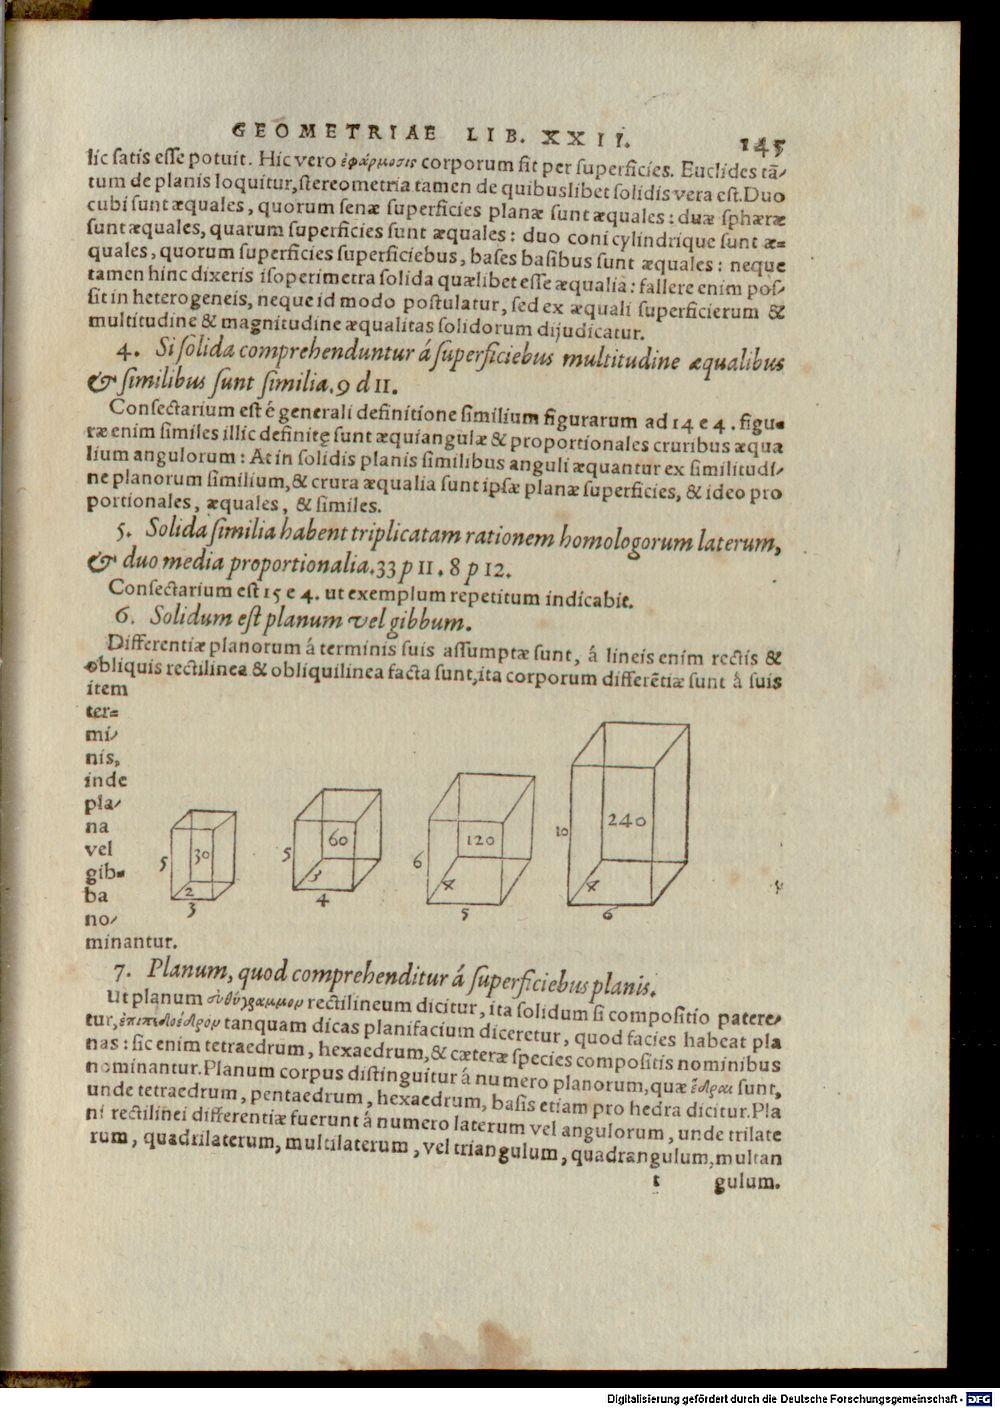 GEOMETRIAE LIB. XXII. 145
lic satis esse potuit. Hic vero ἐφάρμοσις corporum fit per superficies. Euclides tã/
tum de planis loquitur, stereometria tamen de quibuslibet solidis vera est. Duo
cubi sunt æquales, quorum senæ superficies planæ sunt æquales: duæ sphæræ
sunt æquales, quarum superficies sunt æquales: duo coni cylindrique sunt æ=
quales, quorum superficies superficiebus, bases basibus sunt æquales: neque
tamen hinc dixeris isoperimetra solida quælibet esse æqualia: fallere enim pos/
sit in heterogeneis, neque id modo postulatur, sed ex æquali superficierum &
multitudine & magnitudine æqualitas solidorum dijudicatur.
4. Si solida comprehenduntur á superficiebus multitudine æqualibus
& similibus sunt similia. 9 d 11.
Consectarium est é generali definitione similium figurarum ad 14 e 4. figu=
ræ enim similes illic definitę sunt æquiangulæ & proportionales cruribus æqua
lium angulorum: At in solidis planis similibus anguli æquantur ex similitudi/
ne planorum similium, & crura æqualia sunt ipsæ planæ superficies, & ideo pro
portionales, æquales, & similes.
5. Solida similia habent triplicatam rationem homologorum laterum,
& duo media proportionalia. 33 p 11. 8 p 12.
Consectarium est 15 e 4. ut exemplum repetitum indicabit.
6. Solidum est planum vel gibbum.
Differentiæ planorum á terminis suis assumptæ sunt, á lineis enim rectis &
obliquis rectilinea & obliquilinea facta sunt, ita corporum differẽtiæ sunt á suis
item
ter=
mi/
nis,
inde
pla/
na
vel
gib=
ba
no/
minantur.
5 30 2 3
5 60 3 4
6 120 4 5
10 240 4 6
7. Planum, quod comprehenditur á superficiebus planis.
Ut planum εὐθύγραμμον rectilineum dicitur, ita solidum si compositio patere/
tur, ἐπιπεδοέδρον tanquam dicas planifacium diceretur, quod facies habeat pla
nas: sic enim tetraedrum, hexaedrum, & cæteræ species compositis nominibus
nominantur. Planum corpus distinguitur á numero planorum, quæ ἕδραι sunt,
unde tetraedrum, pentaedrum, hexaedrum, basis etiam pro hedra dicitur. Pla
ni rectilinei differentiæ fuerunt á numero laterum vel angulorum, unde trilate
rum, quadrilaterum, multilaterum, vel triangulum, quadrangulum, multan
t gulum.
Digitalisierung gefördert durch die Deutsche Forschungsgemeinschaft - DFG